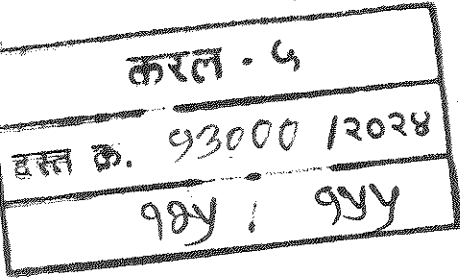 करल - ५
दस्त क्र. १३००० /२०२४
१२५ / १५५